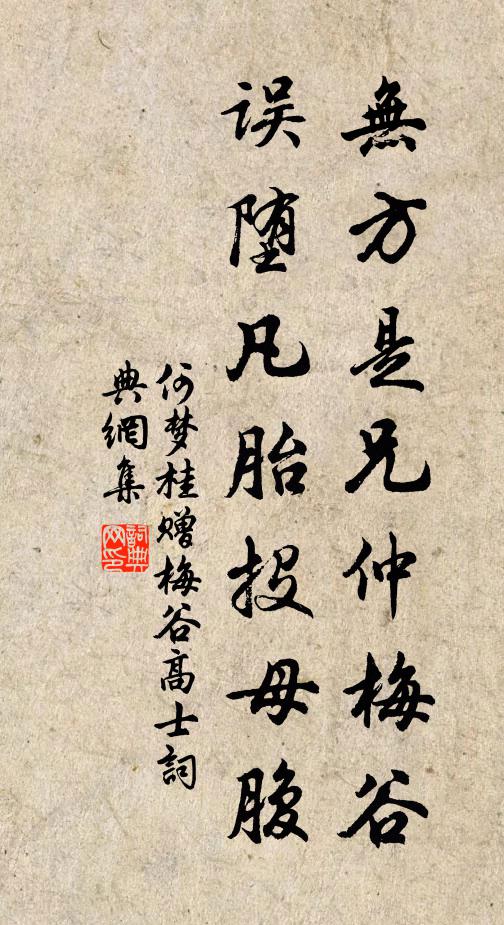 無方是兄仲梅谷
误堕凡胎投母腹
何梦桂赠梅谷高士詞
典網集
詞典
网印